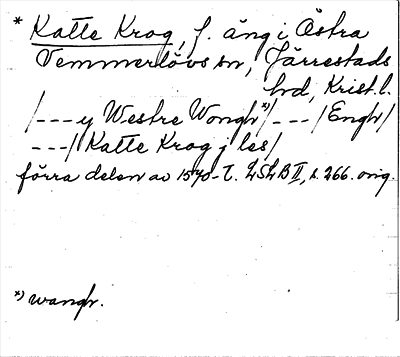 * Katte Krog, f. äng i Östra
Vemmerlövs sn, Järrestads
hd, Krist. l.
/---y Westre Wongh*)/---/Engh/
---/ Katte Krog j les/
förra delen av 1570-t. LSLB II, s. 266. orig.
*) wangh.